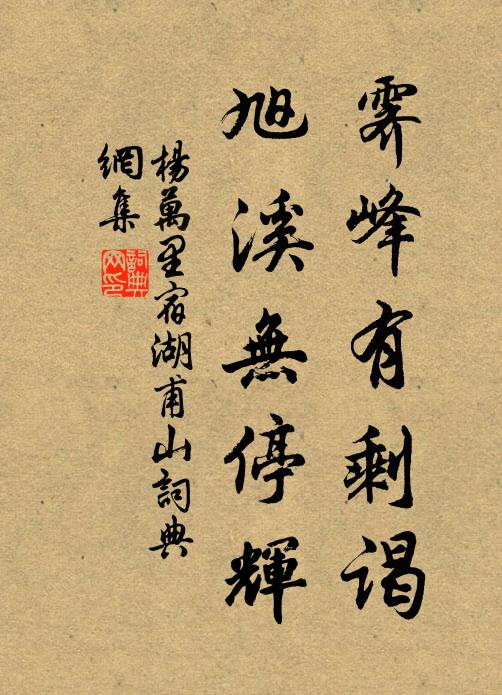 霽峰有剩谒
旭溪無停輝
楊萬里宿湖甫山詞典
網集
詞典
网印